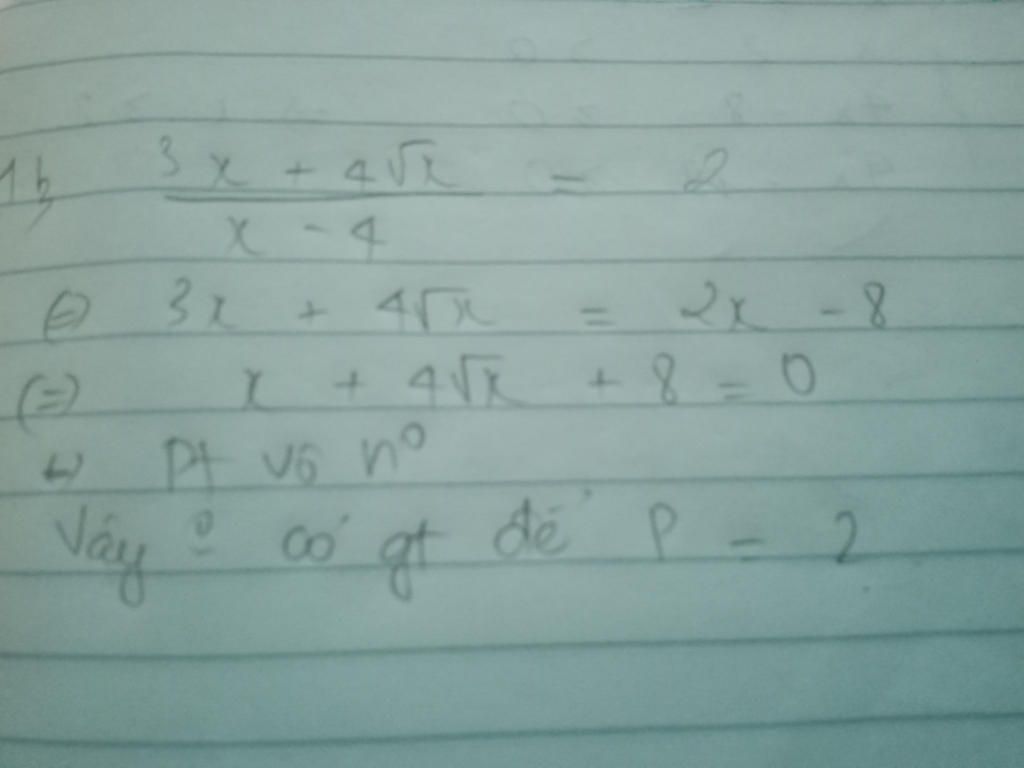 1b, 3x + 4√x / x - 4 = 2
(=) 3x + 4√x = 2x - 8
(=) x + 4√x + 8 = 0
↳ Pt vô n⁰
Vậy ⁰ có gt để P = 2